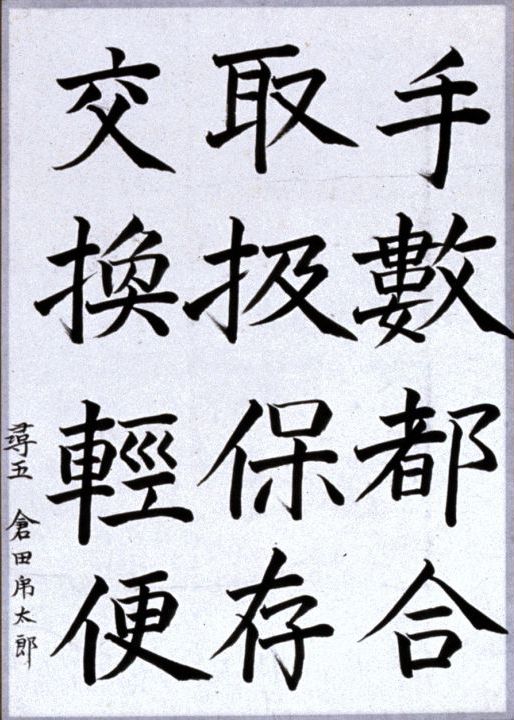 手數都合
取扱保存
交換輕便
尋五 倉田帛太郎